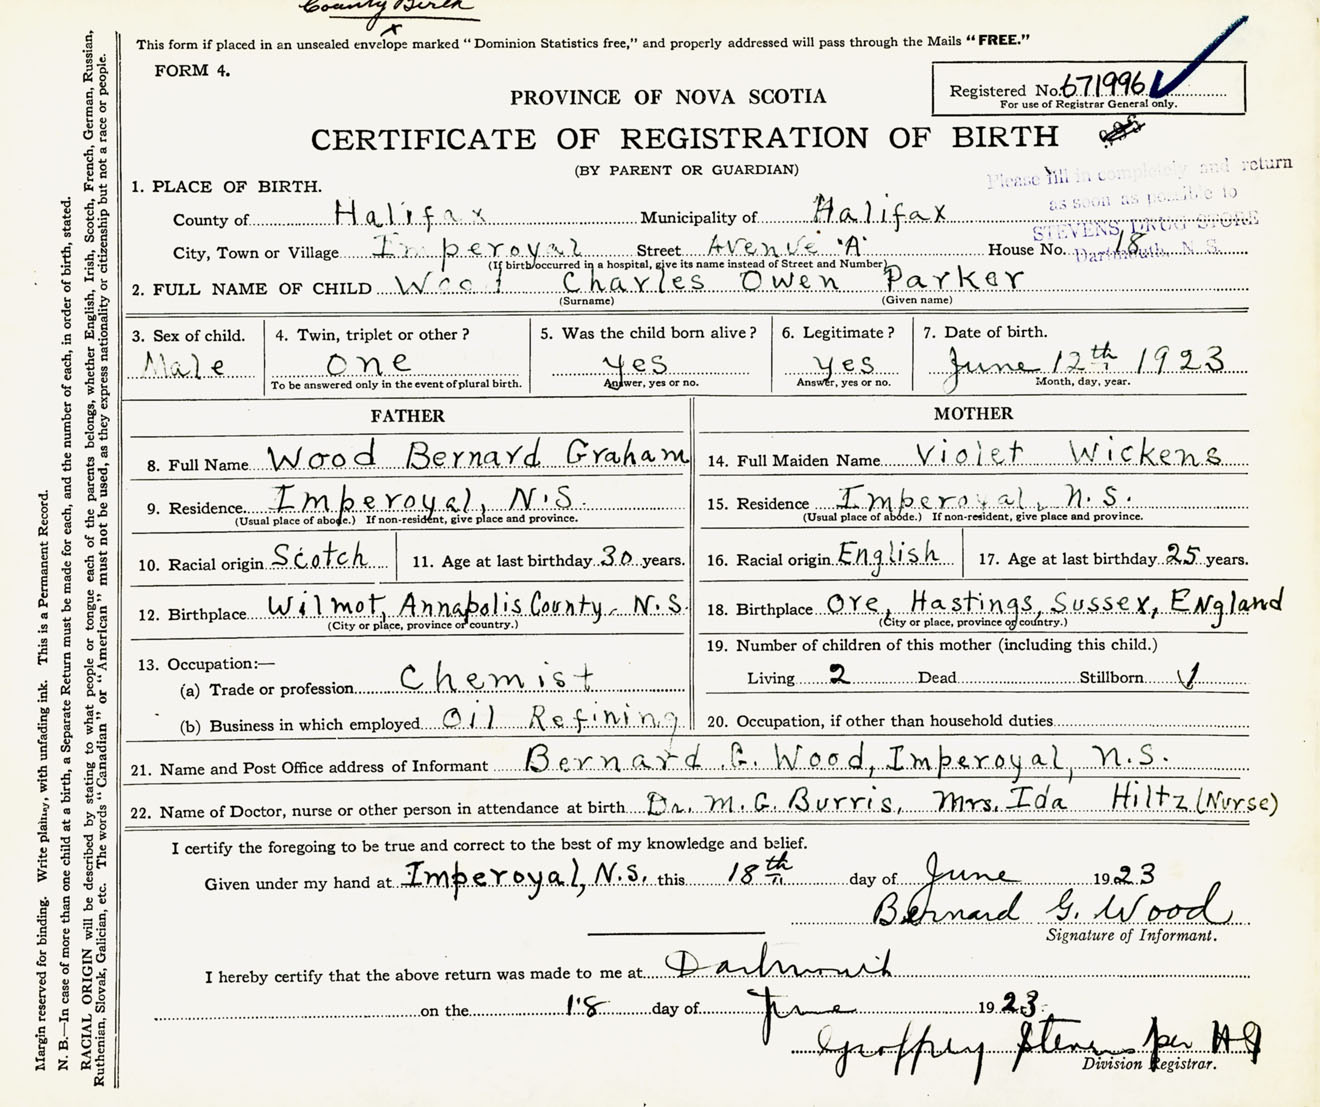 County Birth
This form if placed in an unsealed envelope marked “Dominion Statistics free,” and properly addressed will pass through the Mails “FREE.”
FORM 4.
Registered No. 671996
For use of Registrar General only.
PROVINCE OF NOVA SCOTIA
CERTIFICATE OF REGISTRATION OF BIRTH
(BY PARENT OR GUARDIAN)
Please fill in completely and return
as soon as possible to
STEVENS, DRUG STORE
Dartmouth, N. S.
1. PLACE OF BIRTH.
County of Halifax Municipality of Halifax
City, Town or Village Imperoyal Street Avenue 'A' House No. 18
(If birth occurred in a hospital, give its name instead of Street and Number)
2. FULL NAME OF CHILD Wood Charles Owen Parker
(Surname) (Given name)
3. Sex of child. 4. Twin, triplet or other? 5. Was the child born alive? 6. Legitimate? 7. Date of birth.
Male one yes yes June 12th 1923
To be answered only in the event of plural birth. Answer, yes or no. Answer, yes or no. Month, day, year.
FATHER MOTHER
8. Full Name Wood Bernard Graham 14. Full Maiden Name Violet Wickens
9. Residence Imperoyal, N.S. 15. Residence Imperoyal, N.S.
(Usual place of abode.) If non-resident, give place and province. (Usual place of abode.) If non-resident, give place and province.
10. Racial origin Scotch 11. Age at last birthday 30 years. 16. Racial origin English 17. Age at last birthday 25 years.
12. Birthplace Wilmot, Annapolis County, N.S. 18. Birthplace Ore, Hastings, Sussex, England
(City or place, province or country.) (City or place, province or country.)
13. Occupation:— 19. Number of children of this mother (including this child.)
(a) Trade or profession Chemist Living 2 Dead Stillborn ✓
(b) Business in which employed Oil Refining 20. Occupation, if other than household duties
21. Name and Post Office address of Informant Bernard G. Wood, Imperoyal, N.S.
22. Name of Doctor, nurse or other person in attendance at birth Dr. M.G. Burris, Mrs. Ida Hiltz (Nurse)
I certify the foregoing to be true and correct to the best of my knowledge and belief.
Given under my hand at Imperoyal, N.S. this 18th day of June 1923
Bernard G. Wood
Signature of Informant.
I hereby certify that the above return was made to me at Dartmouth
on the 18 day of June 1923.
Geoffrey Stevens per HS
Division Registrar.
Margin reserved for binding. Write plainly, with unfading ink. This is a Permanent Record.
N. B.—In case of more than one child at a birth, a Separate Return must be made for each, and the number of each, in order of birth, stated.
RACIAL ORIGIN will be described by stating to what people or tongue each of the parents belongs, whether English, Irish, Scotch, French, German, Russian,
Ruthenian, Slovak, Galician, etc. The words “Canadian” or “American” must not be used, as they express nationality or citizenship but not a race or people.